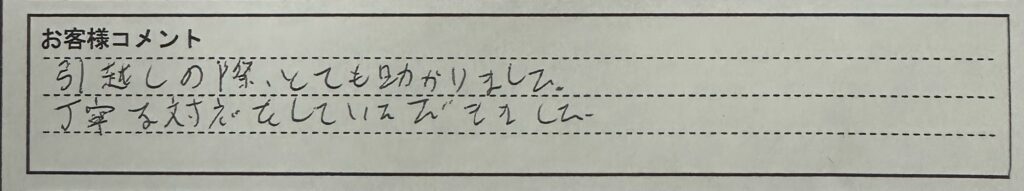 お客様コメント
引越しの際、とても助かりました。
丁寧な対応をしていただきました